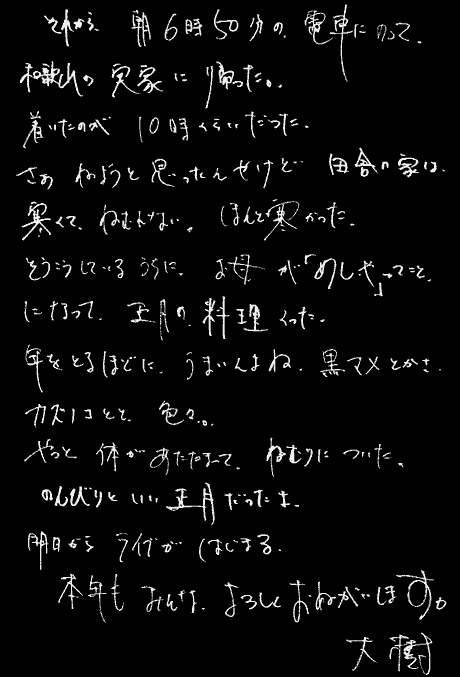 それから、朝6時50分の、電車にのって、
和歌山の実家に帰った。
着いたのが 10時くらいだった。
さぁ ねようと思ったんやけど 田舎の家は、
寒くて、ねむれない。ほんと寒かった。
そうこうしているうちに、お母が「めしや」ってこと
になって、正月の、料理くった。
年をとるほどに、うまいんよね、黒マメとかさ、
カズノコとと、色々。
やっと 体があたたまって、ねむりについた。
のんびりといい正月だったよ。
明日から ライブがはじまる。
本年も みんな、よろしくおねがいします。
大樹